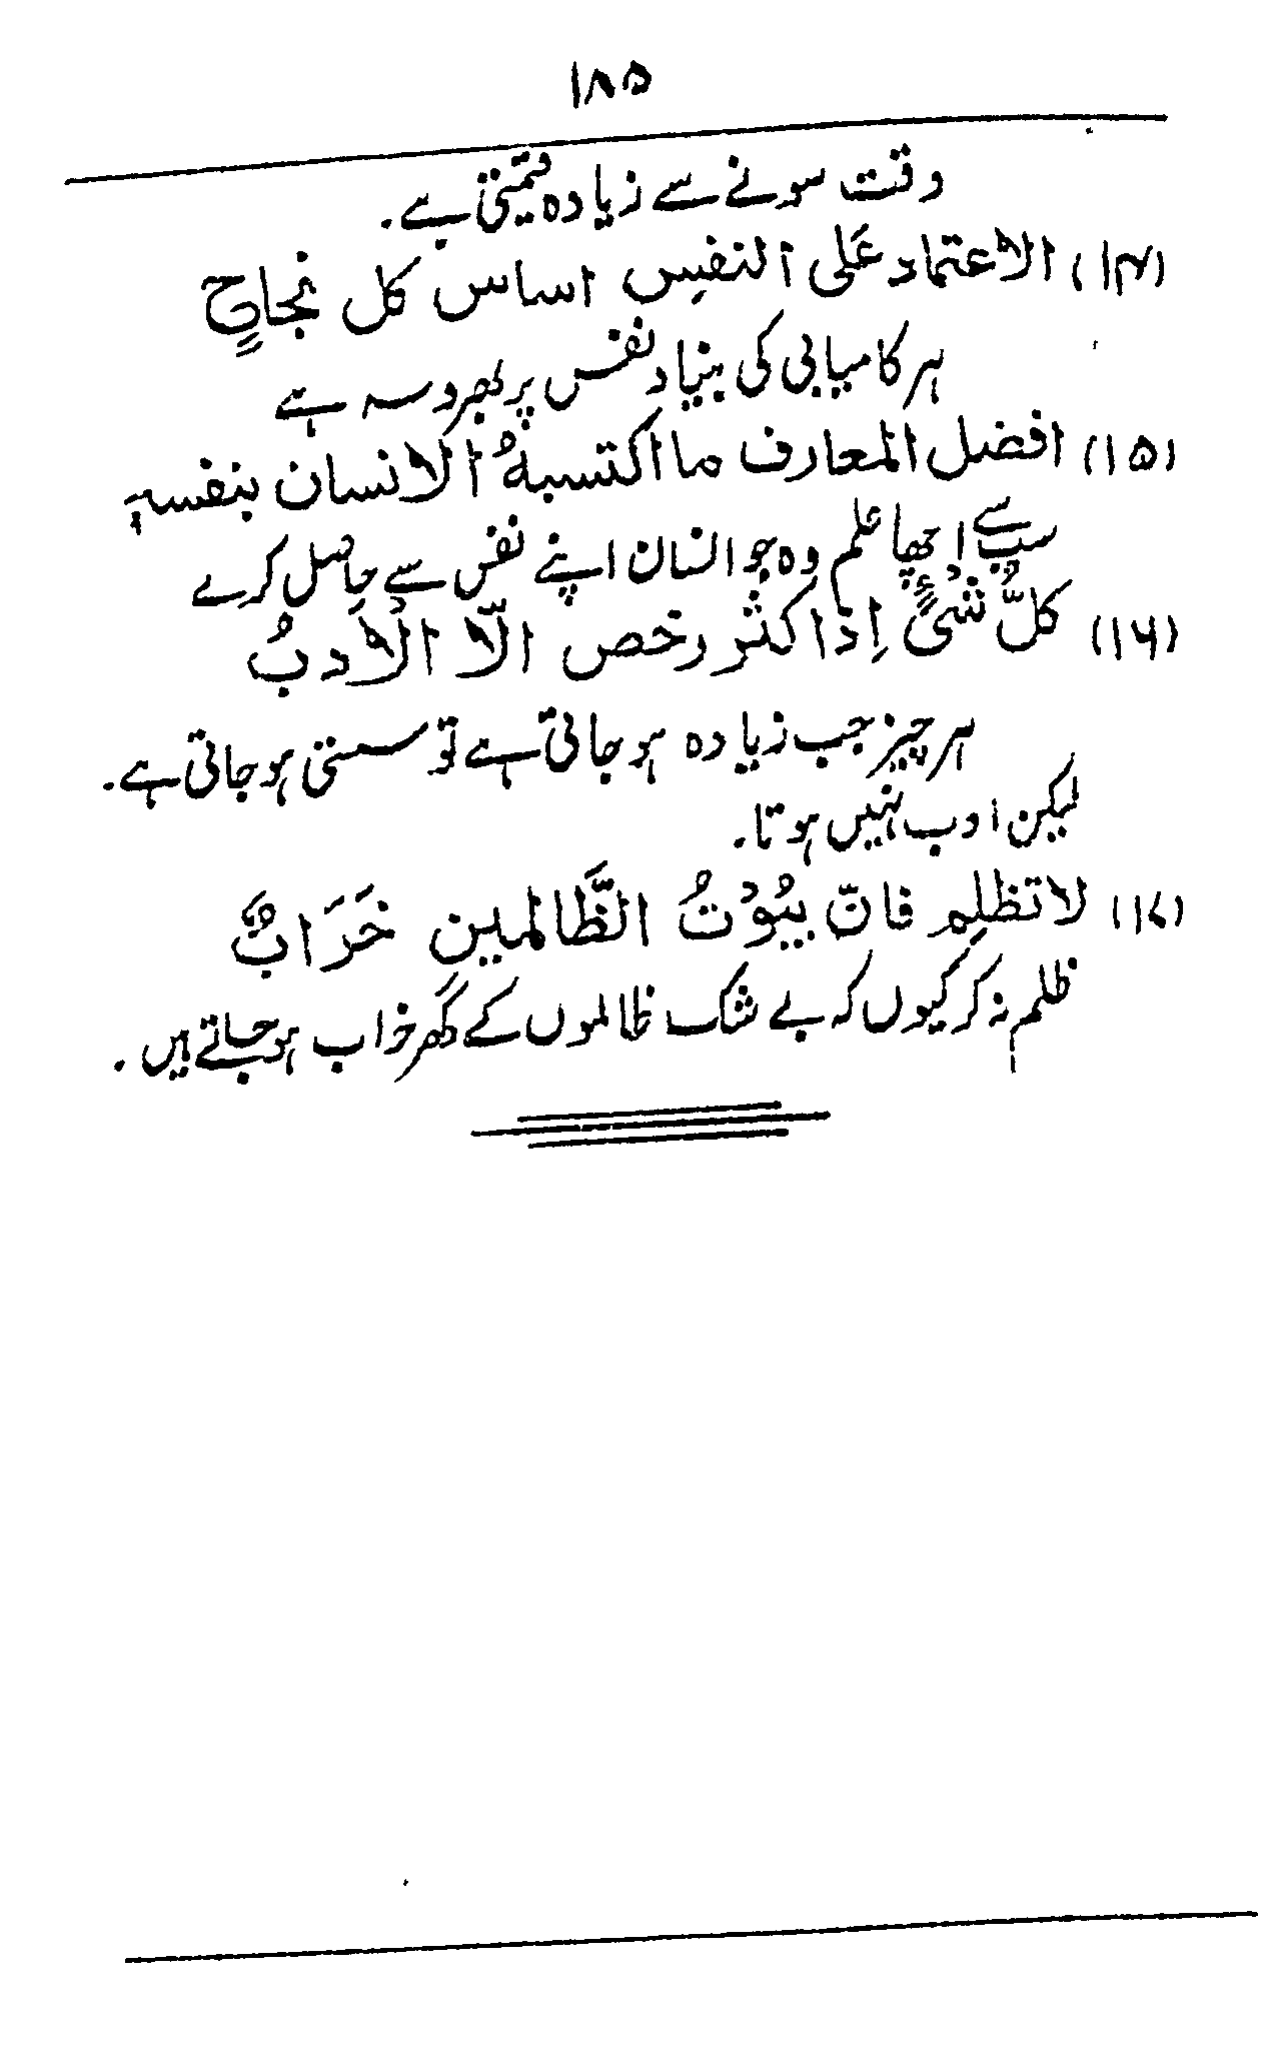 ۱۸۵
وقت سونے سے زیادہ قیمتی ہے۔
(۱۴) الاعتماد عَلی النفسِ اساس کل نجاحٍ
ہر کامیابی کی بنیاد نفس پر بھروسہ ہے
(۱۵) افضل المعارف ما اکتسبہُ الانسان بنفسہٖ
سب سے اچھا علم وہ جو انسان اپنے نفس سے حاصل کرے
(۱۶) کلُّ شیءٍ إذا کثر رخص الّا الْادبُ
ہر چیز جب زیادہ ہو جاتی ہے تو سستی ہو جاتی ہے۔
لیکن ادب نہیں ہوتا۔
(۱۷) لا تظلِم فانّ بیُوْتُ الظَّالمینِ خَرَابٌ
ظلم نہ کر کیوں کہ بے شک ظالموں کے گھر خراب ہو جاتے ہیں۔